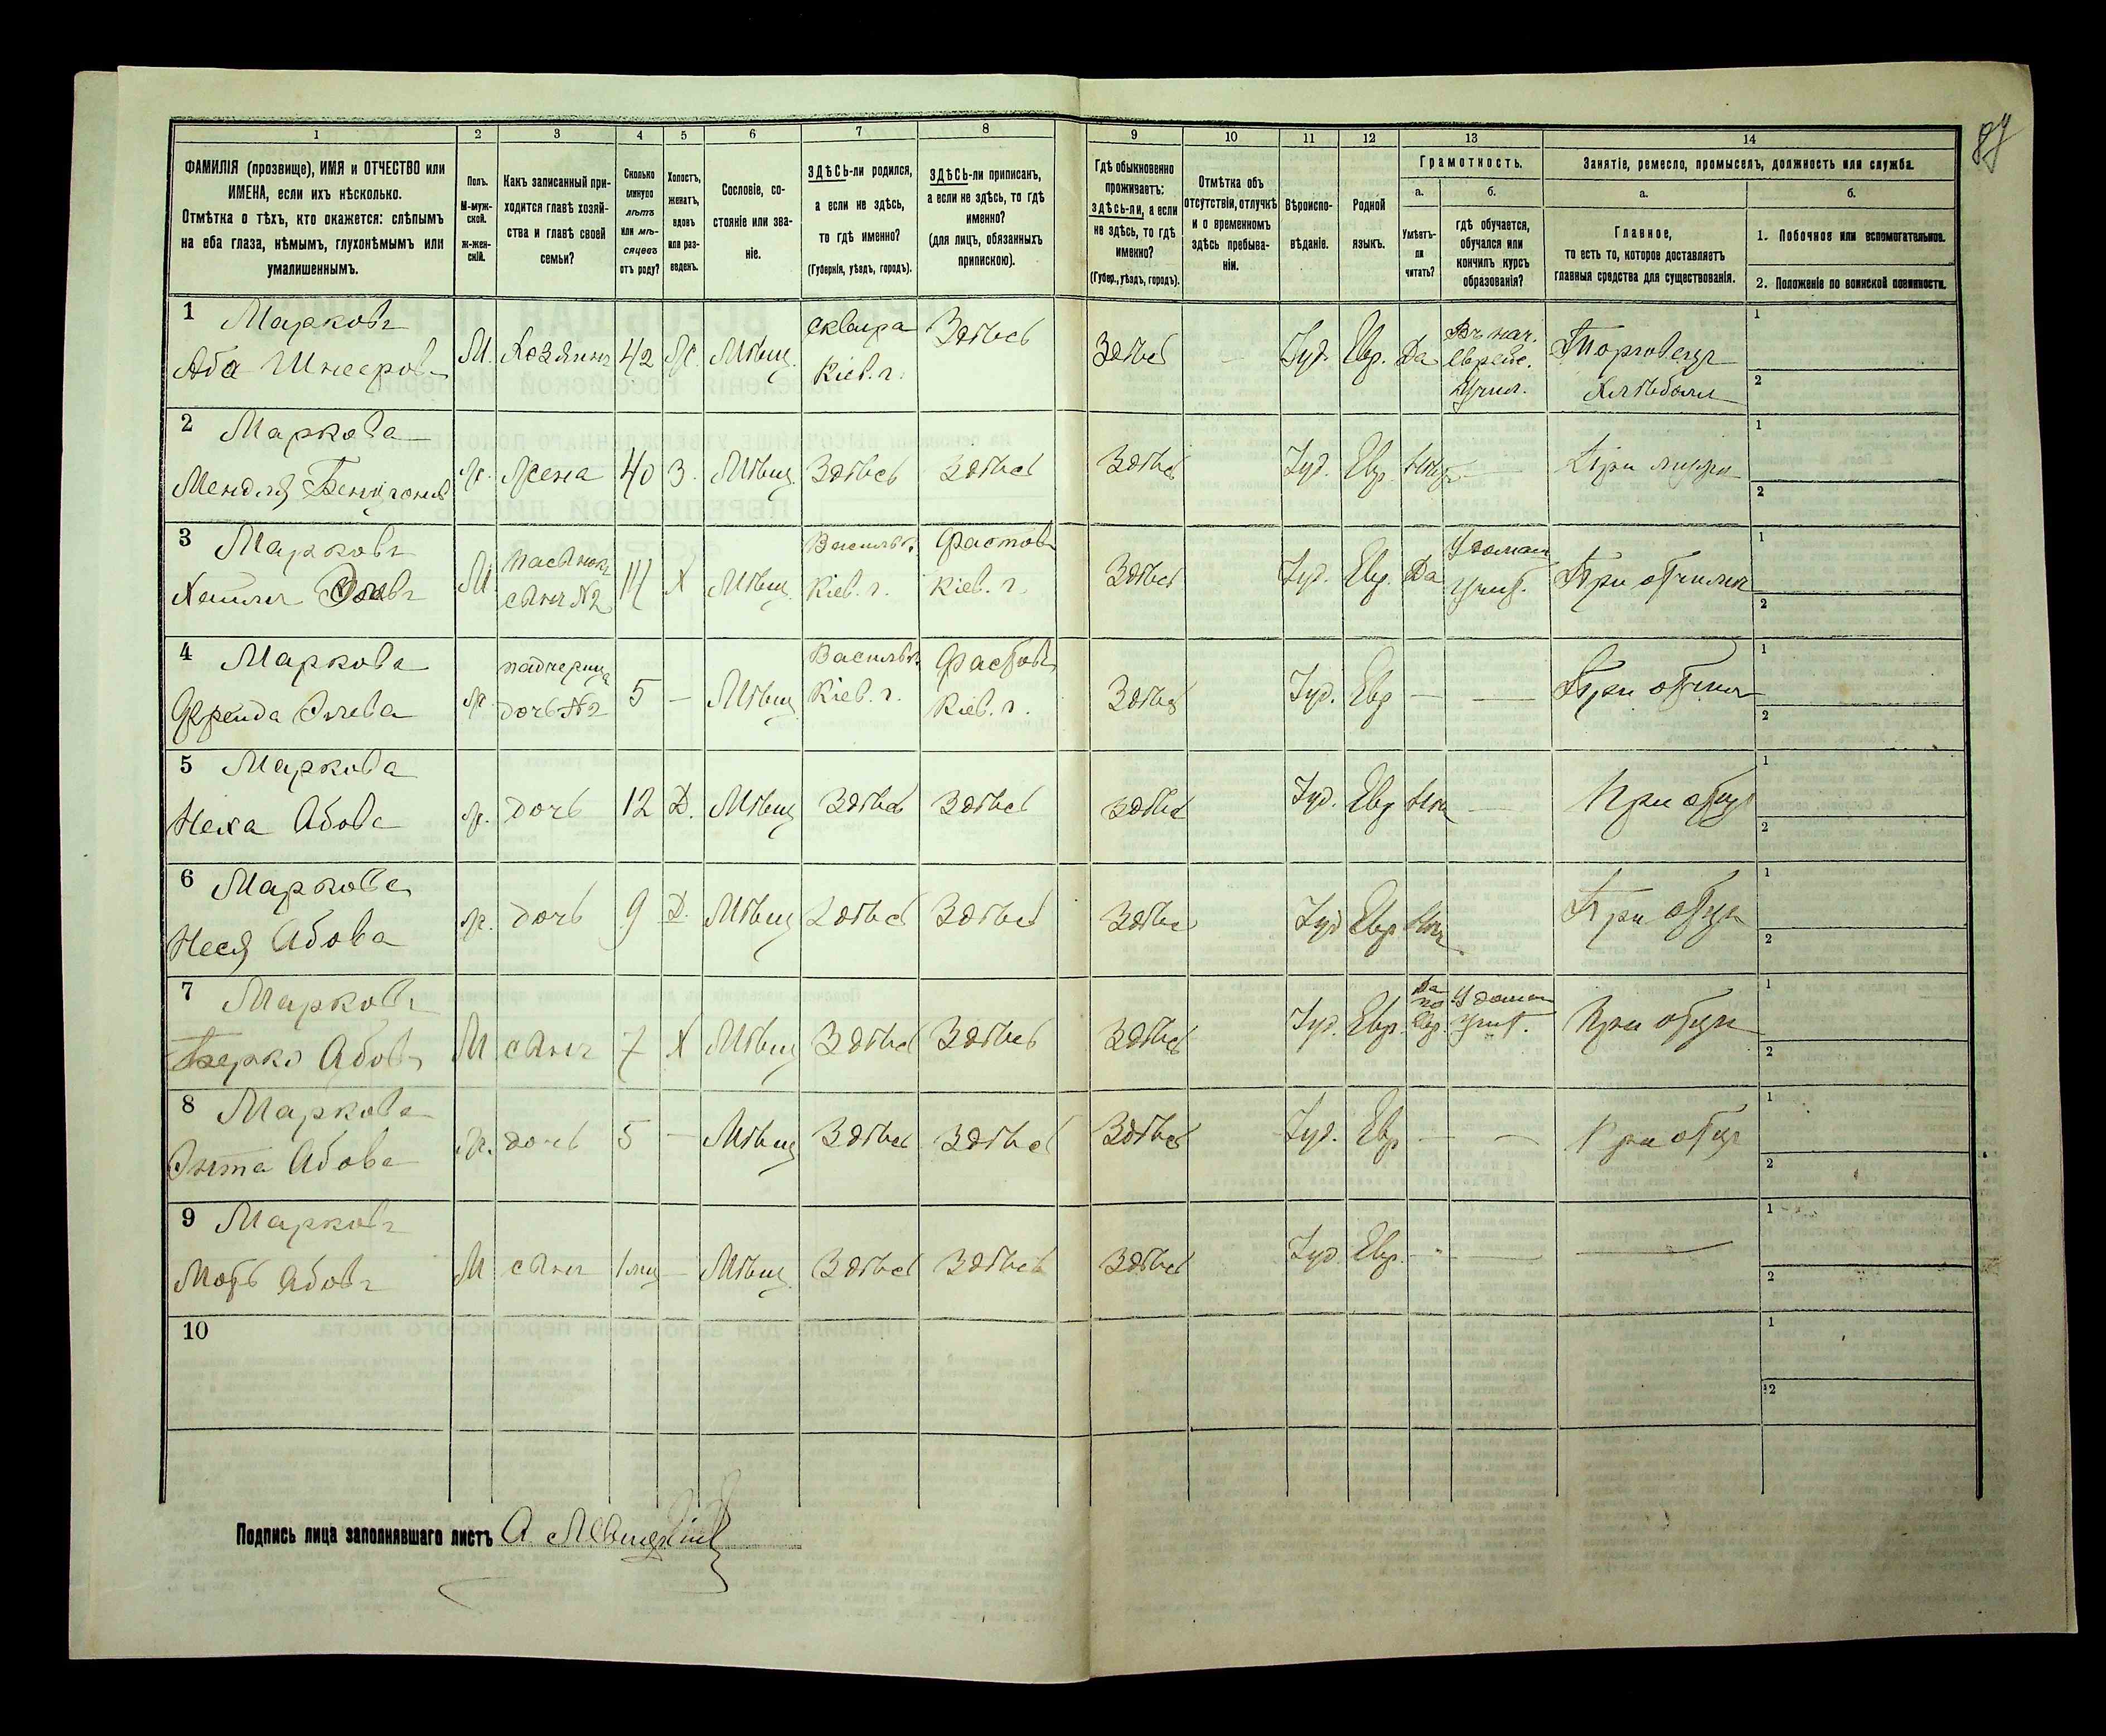 89
1 2 3 4 5 6 7 8 9 10 11 12 13 14
ФАМИЛІЯ (прозвище), ИМЯ и ОТЧЕСТВО или
ИМЕНА, если ихъ нѣсколько.
Отмѣтка о тѣхъ, кто окажется: слѣпымъ
на оба глаза, нѣмымъ, глухонѣмымъ или
умалишеннымъ.
Полъ.
М-муж-
ской.
Ж-жен-
скій.
Какъ записанный при-
ходится главѣ хозяй-
ства и главѣ своей
семьи?
Сколько
минуло
лѣтъ
или мѣ-
сяцевъ
отъ роду?
Холостъ,
женатъ,
вдовъ
или раз-
веденъ.
Сословіе, со-
стояніе или зва-
ніе.
ЗДѢСЬ-ли родился,
а если не здѣсь,
то гдѣ именно?
(Губернія, уѣздъ, городъ).
ЗДѢСЬ-ли приписанъ,
а если не здѣсь, то гдѣ
именно?
(для лицъ, обязанныхъ
припискою).
Гдѣ обыкновенно
проживаетъ:
здѣсь-ли, а если
не здѣсь, то гдѣ
именно?
(Губер., уѣздъ, городъ).
Отмѣтка объ
отсутствіи, отлучкѣ
и о временномъ
здѣсь пребыва-
ніи.
Вѣроиспо-
вѣданіе.
Родной
языкъ.
Грамотность.
а.
Умѣетъ-
ли
читать?
б.
гдѣ обучается,
обучался или
кончилъ курсъ
образованія?
Занятіе, ремесло, промыселъ, должность или служба.
а.
Главное,
то есть то, которое доставляетъ
главныя средства для существованія.
б.
1. Побочное или вспомогательное.
2. Положеніе по воинской повинности.
1 Марковъ
Аба Шнееров
М. Хозяинъ 42 Ж. Мѣщ.
Сквира
Кіев. г.
Здѣсь Здѣсь — Іуд. Евр. Да
Въ нач.
еврейс.
учил.
Торговецъ
Хлѣбомъ
1
2
2 Маркова
Мендля
Ж. Жена 40 З. Мѣщ. Здѣсь Здѣсь Здѣсь Іуд. Евр Нѣт — При мужѣ
1
2
3 Марковъ
М.
пасынокъ
сынъ №2
14 Х Мѣщ.
Васильк.
Кіев. г.
Фастовъ
Кіев. г.
Здѣсь Іуд. Евр. Да
У домаш
учит.
При отчимѣ
1
2
4 Маркова
Фрейда Элева
Ж.
падчерица
дочь №2
5 — Мѣщ
Васильк.
Кіев. г.
Фастовъ
Кіев. г.
Здѣсь Іуд. Евр — — При отчимѣ
1
2
5 Маркова
Неха Абова
Ж. дочь 12 Д. Мѣщ Здѣсь Здѣсь Здѣсь Іуд. Евр Нѣт — При отцѣ
1
2
6 Маркова
Неся Абова
Ж. дочь 9 Д. Мѣщ Здѣсь Здѣсь Здѣсь Іуд Евр Нѣт При отцѣ
1
2
7 Марковъ
Берко Абовъ
М сынъ 7 Х Мѣщ Здѣсь Здѣсь Здѣсь Іуд. Евр.
Да
по
Евр.
У домаш
учит.
При отцѣ
1
2
8 Маркова
Энта Абова
Ж. дочь 5 — Мѣщ Здѣсь Здѣсь Здѣсь Іуд. Евр — — При отцѣ
1
2
9 Марковъ
Моть Абовъ
М сынъ 1 мѣц — Мѣщ. Здѣсь Здѣсь Здѣсь Іуд Евр. — — —
1
2
10
1
2
Подпись лица заполнявшаго листъ А